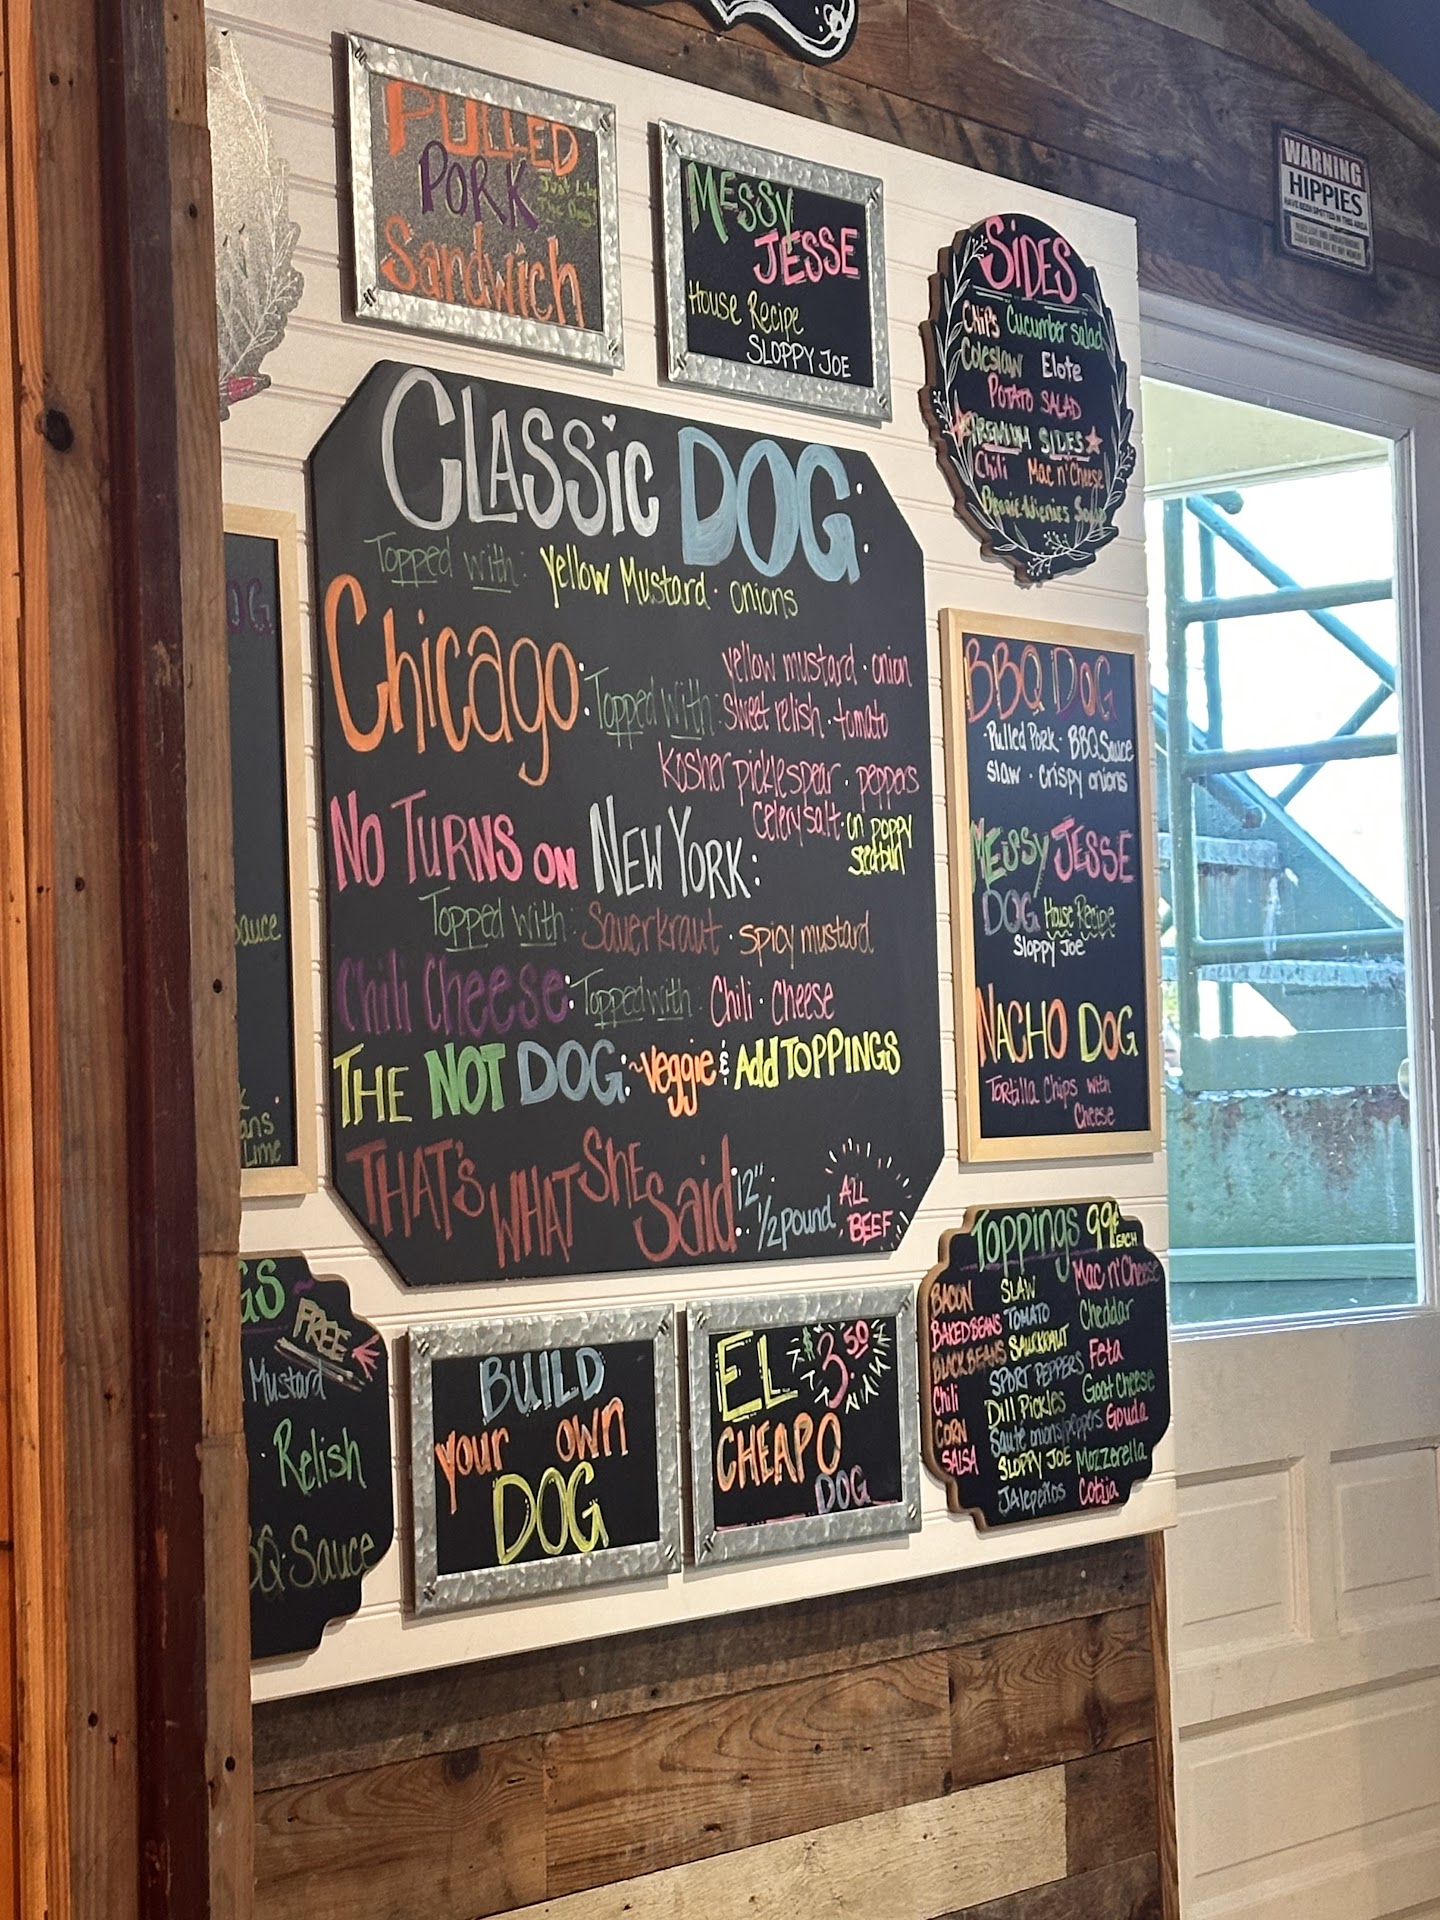 PULLED
PORK
Just Like
The Dog!
Sandwich
MESSY
JESSE
House Recipe
SLOPPY JOE
SIDES
Chips Cucumber Salad
Coleslaw Elote
POTATO SALAD
PREMIUM SIDES
Chili Mac n' Cheese
WARNING
HIPPIES
HAVE BEEN SPOTTED IN THIS AREA
CLASSIC DOG:
Topped with: Yellow Mustard · onions
Chicago: Topped With: yellow mustard · onion
sweet relish · tomato
Kosher pickle spear · peppers
celery salt · on poppy
seed bun
NO TURNS ON NEW YORK:
Topped with: Sauerkraut · spicy mustard
Chili Cheese: Topped with: Chili · Cheese
THE NOT DOG: ~veggie & Add TOPPINGS
THAT'S WHAT SHE Said: 12"
1/2 pound
ALL
BEEF
BBQ DOG
Pulled Pork · BBQ Sauce
slaw · crispy onions
MESSY JESSE
DOG House Recipe
Sloppy Joe
NACHO DOG
Tortilla Chips with
Cheese
OG
sauce
ans
Lime
GS ~
FREE
Mustard
· Relish
BQ · Sauce
BUILD
your own
DOG
EL $3.50
CHEAPO
DOG
Toppings 99¢
EACH
BACON SLAW Mac n' Cheese
BAKED BEANS TOMATO Cheddar
BLACK BEANS SAUERKRAUT Feta
Chili SPORT PEPPERS Goat Cheese
CORN Dill Pickles Gouda
SALSA Saute onions/peppers Mozzerella
SLOPPY JOE Cotija
JAlepeños